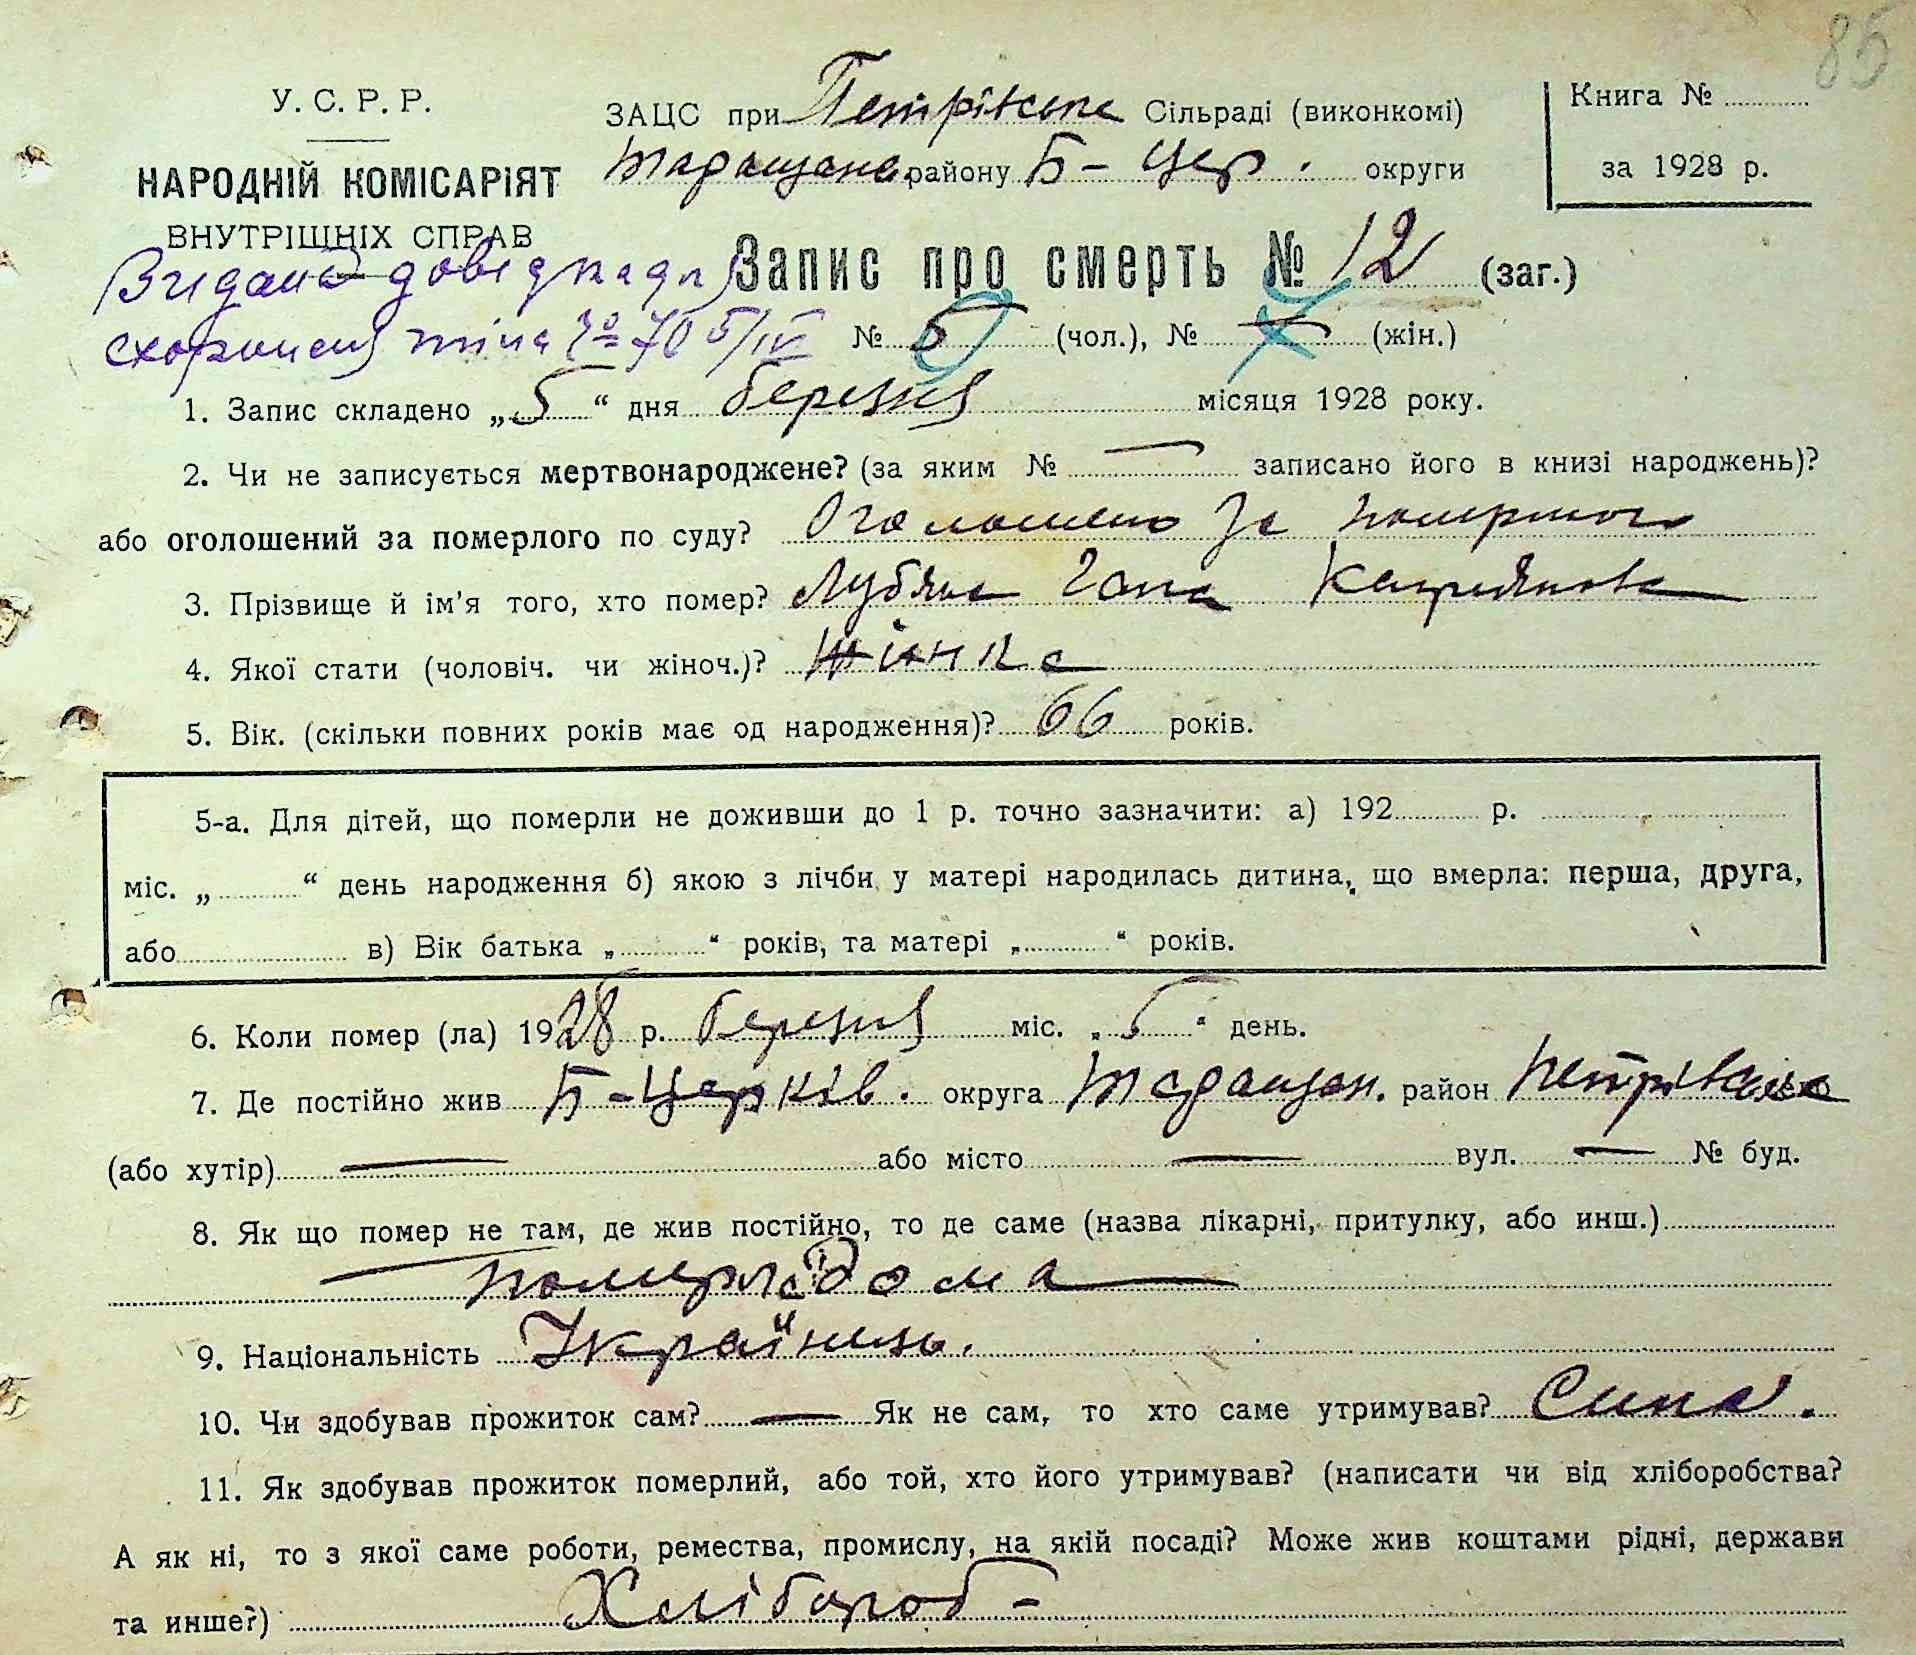 85
У. С. Р. Р.
НАРОДНІЙ КОМІСАРІЯТ
ВНУТРІШНІХ СПРАВ
ЗАЦС при Петрівське Сільраді (виконкомі)
Таращанс. району Б-Цер. округи
Книга №
за 1928 р.
Запис про смерть № 12 (заг.)
Видано довідка для
схоронення тіла № 70 5/IV
№ 5 (чол.), № (жін.)
1. Запис складено „5“ дня березня місяця 1928 року.
2. Чи не записується мертвонароджене? (за яким № — записано його в книзі народжень)?
або оголошений за померлого по суду? Оголошено за померлого
3. Прізвище й ім'я того, хто помер? Гапа
4. Якої стати (чоловіч. чи жіноч.)? Жінка
5. Вік. (скільки повних років має од народження)? 66 років.
5-а. Для дітей, що померли не доживши до 1 р. точно зазначити: а) 192 р.
міс. „ “ день народження б) якою з лічби у матері народилась дитина, що вмерла: перша, друга,
або в) Вік батька „ “ років, та матері „ “ років.
6. Коли помер (ла) 1928 р. березня міс. „5“ день.
7. Де постійно жив Б-Церків. округа Таращан. район
(або хутір) — або місто — вул. — № буд.
8. Як що помер не там, де жив постійно, то де саме (назва лікарні, притулку, або инш.)
померла дома
9. Національність Українець.
10. Чи здобував прожиток сам? — Як не сам, то хто саме утримував?
11. Як здобував прожиток померлий, або той, хто його утримував? (написати чи від хліборобства?
А як ні, то з якої саме роботи, ремества, промислу, на якій посаді? Може жив коштами рідні, держави
та инше?) Хлібороб -